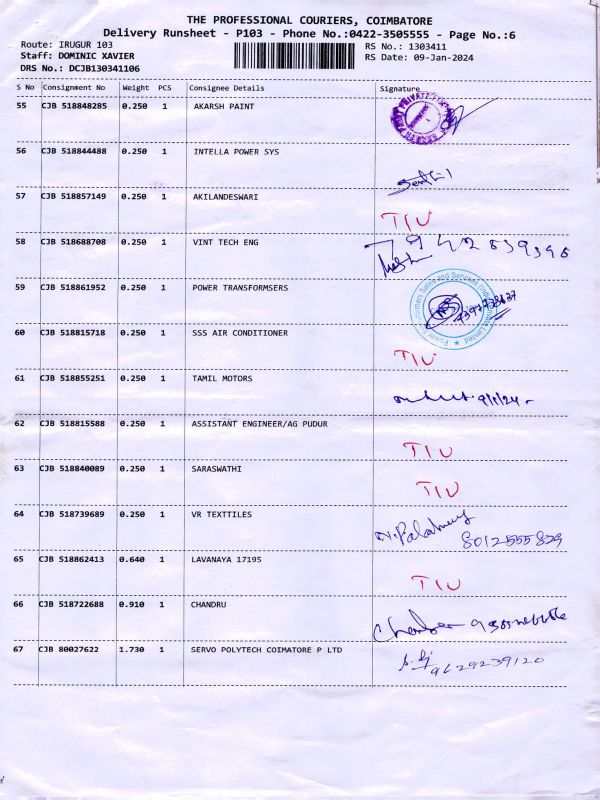 THE PROFESSIONAL COURIERS, COIMBATORE
Delivery Runsheet - P103 - Phone No.:0422-3505555 - Page No.:6
Route: IRUGUR 103 RS No.: 1303411
Staff: DOMINIC XAVIER RS Date: 09-Jan-2024
DRS No.: DCJB130341106
S No Consignment No Weight PCS Consignee Details Signature
55 CJB 518848285 0.250 1 AKARSH PAINT
56 CJB 518844488 0.250 1 INTELLA POWER SYS
57 CJB 518857149 0.250 1 AKILANDESWARI T/U
58 CJB 518688708 0.250 1 VINT TECH ENG
59 CJB 518861952 0.250 1 POWER TRANSFORMSERS
60 CJB 518815718 0.250 1 SSS AIR CONDITIONER T/U
61 CJB 518855251 0.250 1 TAMIL MOTORS 9/1/24
62 CJB 518815588 0.250 1 ASSISTANT ENGINEER/AG PUDUR T/U
63 CJB 518840089 0.250 1 SARASWATHI T/U
64 CJB 518739689 0.250 1 VR TEXTTILES 8012555829
65 CJB 518862413 0.640 1 LAVANAYA 17195 T/U
66 CJB 518722688 0.910 1 CHANDRU
67 CJB 80027622 1.730 1 SERVO POLYTECH COIMATORE P LTD 9629239120